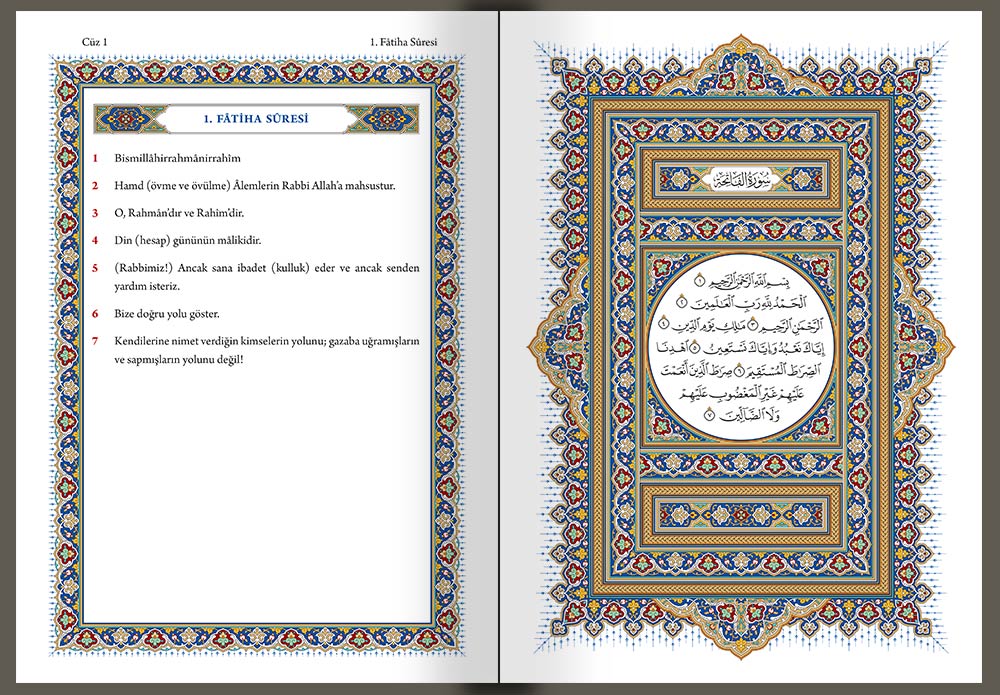 Cüz 1
1. Fâtiha Sûresi
1. FÂTİHA SÛRESİ
1 Bismillâhirrahmânirrahîm
2 Hamd (övme ve övülme) Âlemlerin Rabbi Allah’a mahsustur.
3 O, Rahmân’dır ve Rahîm’dir.
4 Din (hesap) gününün mâlikidir.
5 (Rabbimiz!) Ancak sana ibadet (kulluk) eder ve ancak senden
yardım isteriz.
6 Bize doğru yolu göster.
7 Kendilerine nimet verdiğin kimselerin yolunu; gazaba uğramışların
ve sapmışların yolunu değil!
سُورَةُ الْفَاتِحَةِ
بِسْمِ اللّٰهِ الرَّحْمٰنِ الرَّحِيمِ ١
اَلْحَمْدُ لِلّٰهِ رَبِّ الْعَالَمِينَ ٢
اَلرَّحْمٰنِ الرَّحِيمِ ٣ مَالِكِ يَوْمِ الدِّينِ ٤
اِيَّاكَ نَعْبُدُ وَاِيَّاكَ نَسْتَعِينُ ٥ اِهْدِنَا
الصِّرَاطَ الْمُسْتَقِيمَ ٦ صِرَاطَ الَّذِينَ اَنْعَمْتَ
عَلَيْهِمْ غَيْرِ الْمَغْضُوبِ عَلَيْهِمْ
وَلَا الضَّالِّينَ ٧